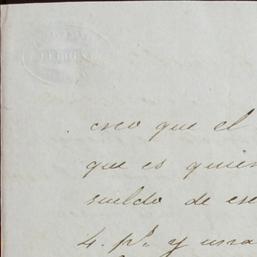 creo que el
que es quien
sueldo de ese
4. p.ª y una